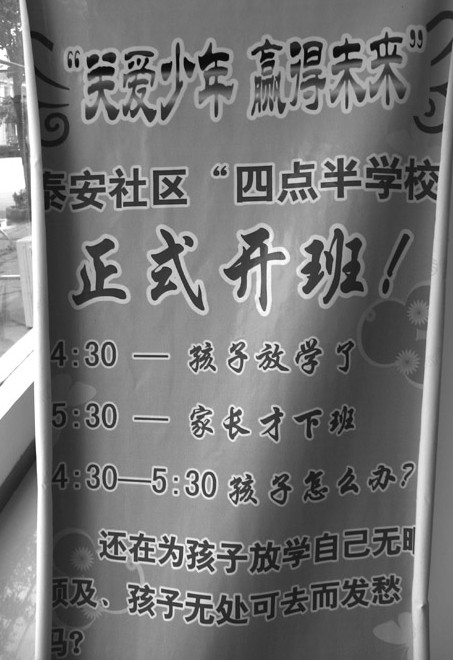 “关爱少年 赢得未来”
泰安社区“四点半学校
正式开班！
4:30 — 孩子放学了
5:30 — 家长才下班
4:30—5:30 孩子怎么办？
还在为孩子放学自己无暇
顾及、孩子无处可去而发愁
吗？